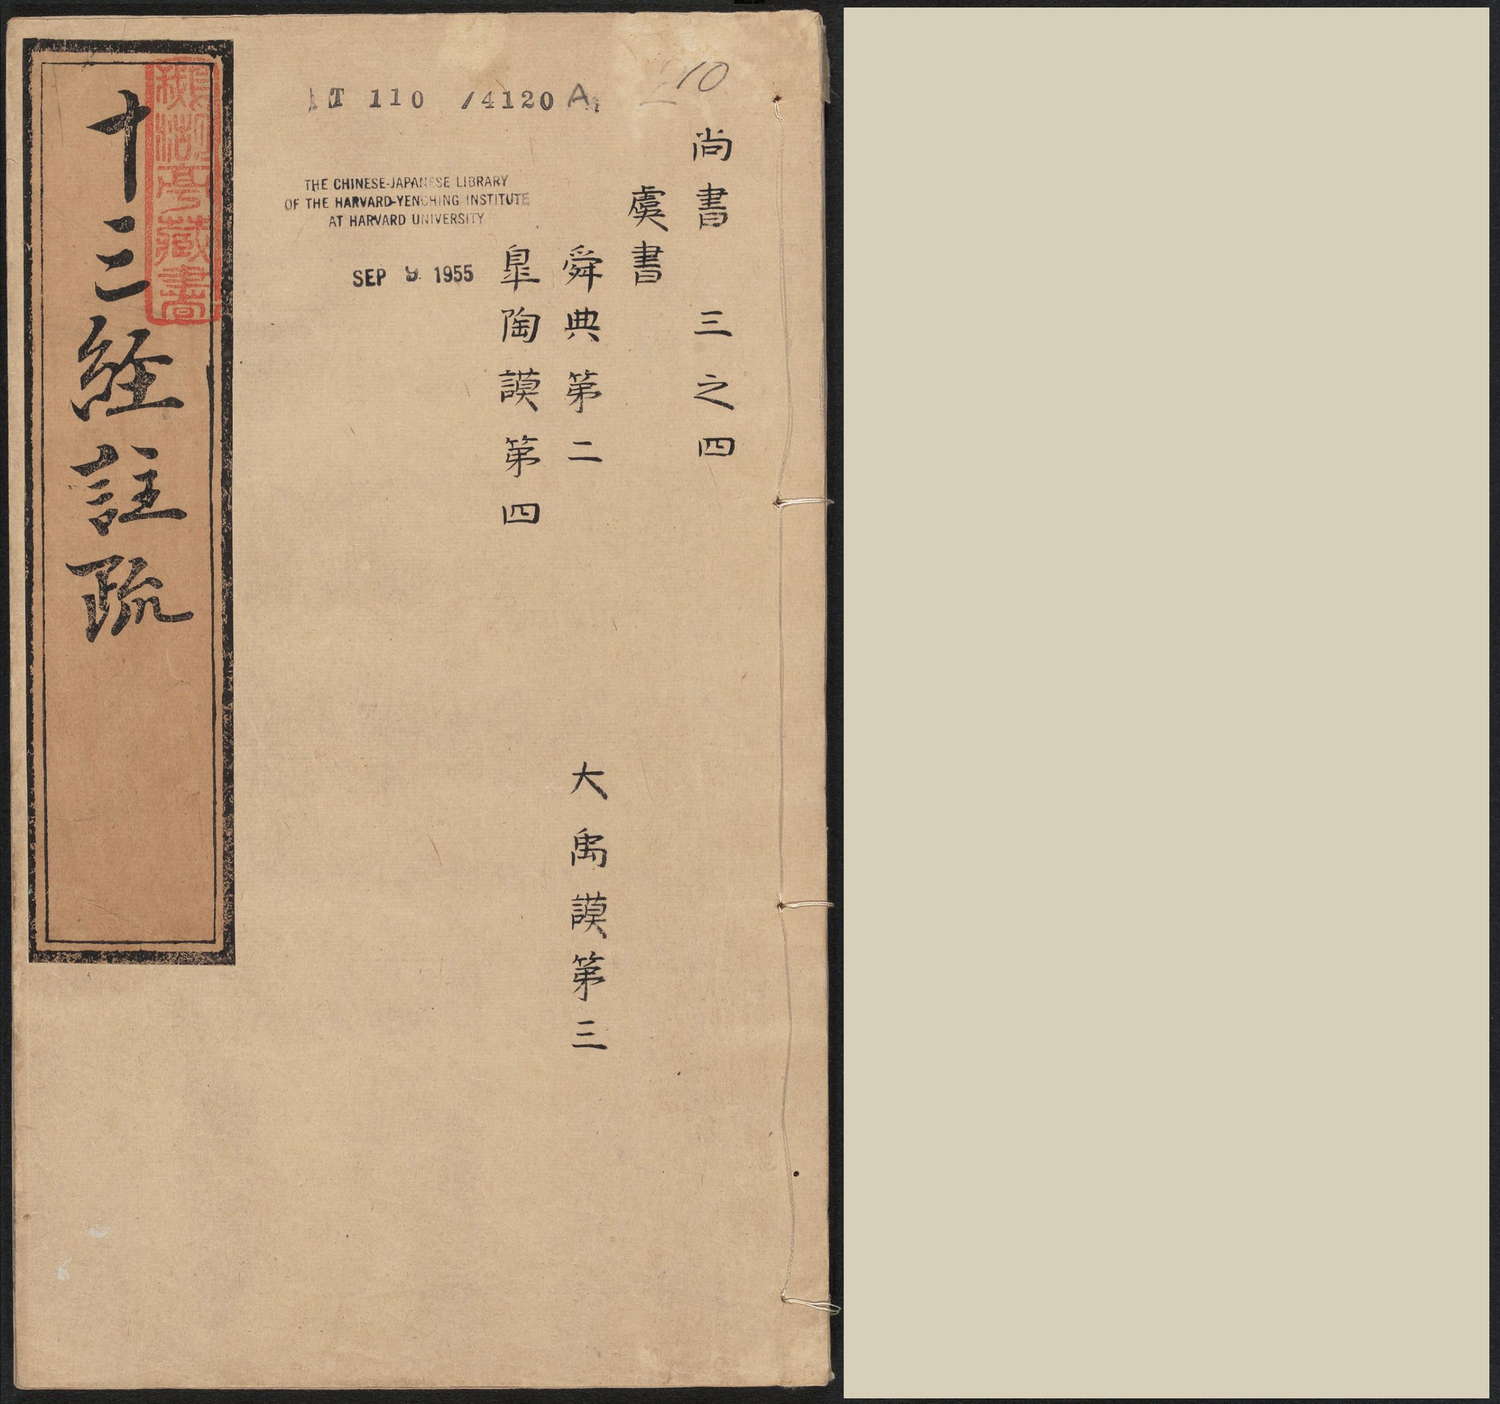 T 110 /4120 A
10
THE CHINESE-JAPANESE LIBRARY
OF THE HARVARD-YENCHING INSTITUTE
AT HARVARD UNIVERSITY
SEP 9 1955
尚書 三之四
虞書
舜典第二 大禹謨第三
皐陶謨第四
十三經註疏
湖亭藏書